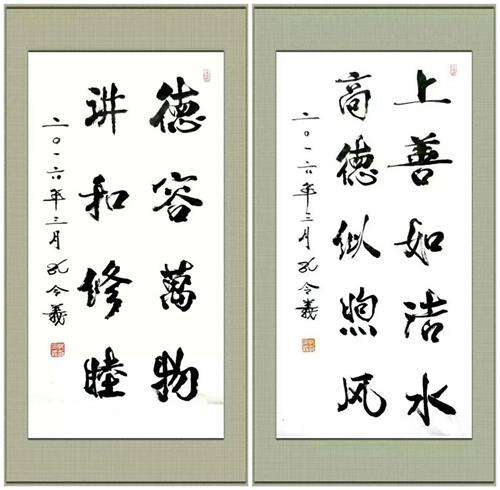 德容萬物
讲和修睦
二〇一六年三月孔令義
上善如洁水
高德似煦风
二〇一六年三月孔令義